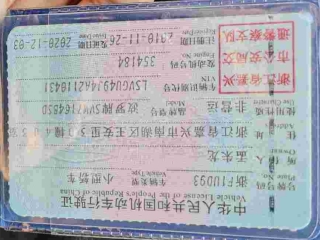 中华人民共和国机动车行驶证
Vehicle License of the People's Republic of China
号牌号码 浙F1UD93 车辆类型 小型轿车
Plate No. Vehicle Type
所有人
Owner
住址 浙江省嘉兴市南湖区
Address
使用性质 非营运 品牌型号 波罗牌
Use Character Model
浙江省嘉兴
市公安局交
通警察支队
车辆识别代号
VIN
发动机号码
Engine No.
注册日期 2010-11-26 发证日期 2020-12-03
Register Date Issue Date